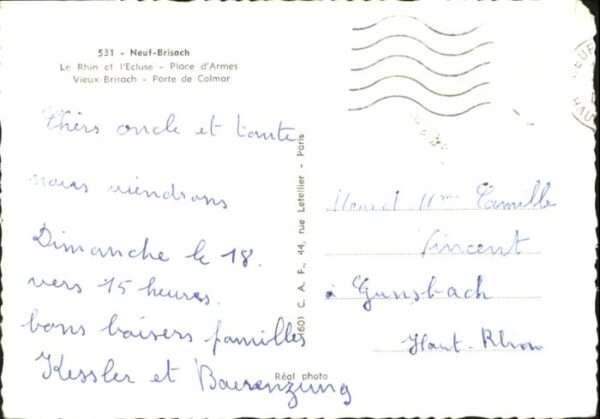 531 - Neuf-Brisach
Le Rhin et l'Ecluse - Place d'Armes
Vieux-Brisach - Porte de Colmar
Chers oncle et tante
nous viendrons
Dimanche le 18.
vers 15 heures.
bons baisers familles
Kessler et Baerenzung
(60) C. A. F., 44, rue Letellier - Paris
Réal photo
Mme Camille
Vincent
à Gunsbach
Haut-Rhin